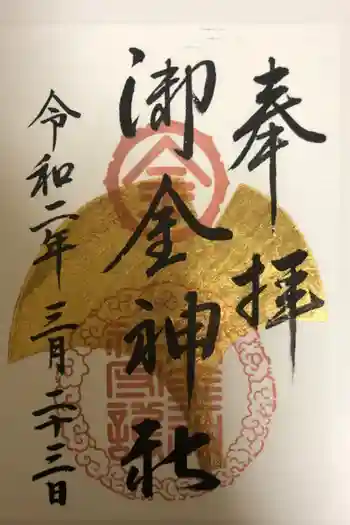 奉拝
御金神社
令和二年三月二十三日